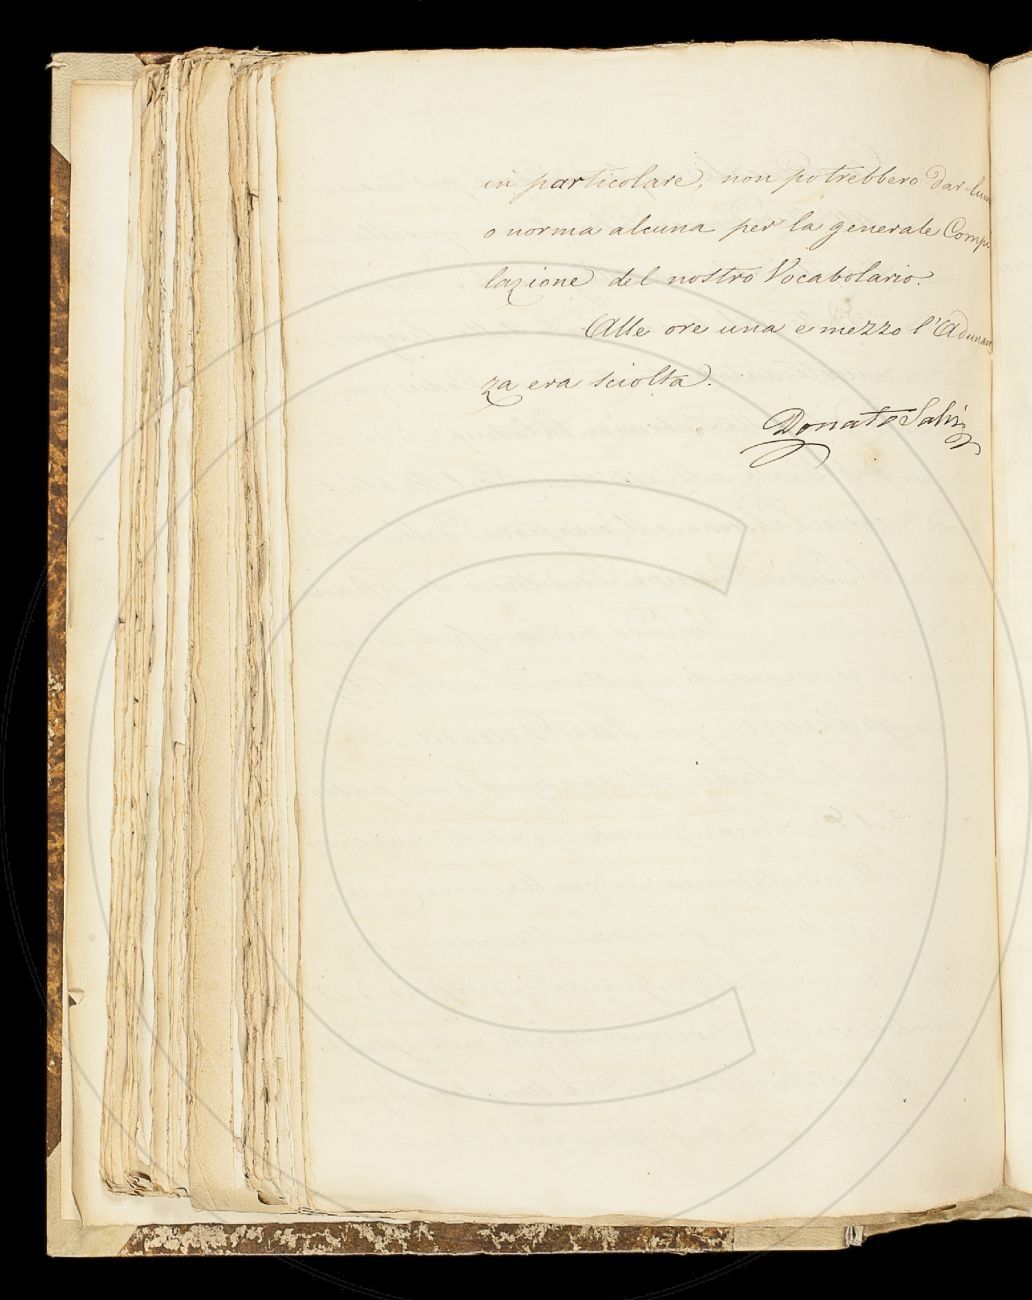 in particolare, non potrebbero dar lum
o norma alcuna per la generale Compi
lazione del nostro Vocabolario.
Alle ore una e mezzo l'Adunan
za era sciolta.
Donato Salvi